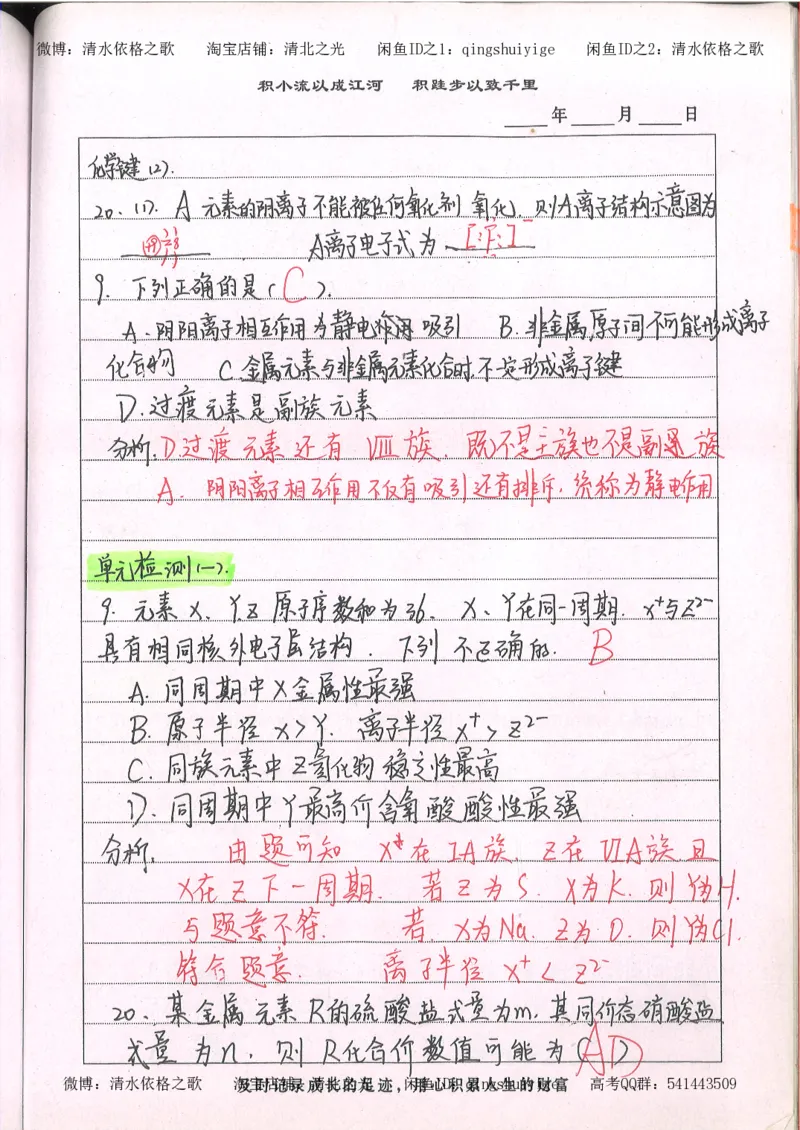 微博：清水依格之歌 淘宝店铺：清北之光 闲鱼ID之1：qingshuiyige 闲鱼ID之2：清水依格之歌
积小流以成江河 积跬步以致千里
年 月 日
化学键(2).
20. (1). A 元素的阴离子不能被任何氧化剂 氧化，则A离子结构示意图为
+9 2 8 A离子电子式为 [:F:]⁻
9. 下列正确的是( C ).
A. 阴阳离子相互作用为静电作用 吸引 B. 非金属原子间不可能形成离子
化合物 C.金属元素与非金属元素化合时不一定形成离子键
D.过渡元素是副族元素
分析: D过渡元素还有 Ⅷ族. 既不是主族也不是副族
A. 阴阳离子相互作用不仅有吸引还有排斥，统称为静电作用
单元检测(一).
9. 元素 X、Y、Z 原子序数和为36. X、Y在同一周期. X⁺与Z²⁻
具有相同核外电子层结构. 下列不正确的. B
A. 同周期中X金属性最强
B. 原子半径 X>Y. 离子半径 X⁺>Z²⁻
C. 同族元素中Z氢化物稳定性最高
D. 同周期中Y最高价含氧酸酸性最强
分析. 由题可知 X在ⅠA族. Z在ⅥA族且
X在Z下一周期. 若Z为S. X为K. 则Y为H.
与题意不符. 若X为Na. Z为O. 则Y为Cl.
符合题意. 离子半径 X⁺<Z²⁻
20. 某金属元素R的硫酸盐式量为m，其同价态硝酸盐
式量为n，则R化合价数值可能为(AD)
微博：清水依格之歌 及时记录成长的足迹，用心积累人生的财富 高考QQ群：541443509